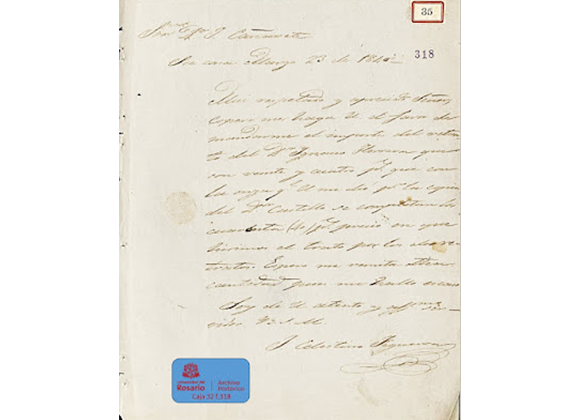 35
318
Sor Dr J. Cañarete
Su casa Marzo 23 de 184
Muy respetado y apreciado Señor,
Espero me haga U. el favor de
mandarme el importe del retra-
to del Dr Ignacio Herrera que
son veinte y cuatro ps que con
los que U. me dio pr la copia
del Dr Castillo se completan los
cuarenta (40) ps precio en que
hicimos el trato por los dos re-
tratos. Espero me remita otra
cantidad pues me hallo
Soy de U. atento y ser-
vidor Q.B.S.M.
J. Celestino Figueroa
Universidad del
Rosario
Archivo
Histórico
Caja 32 f.318